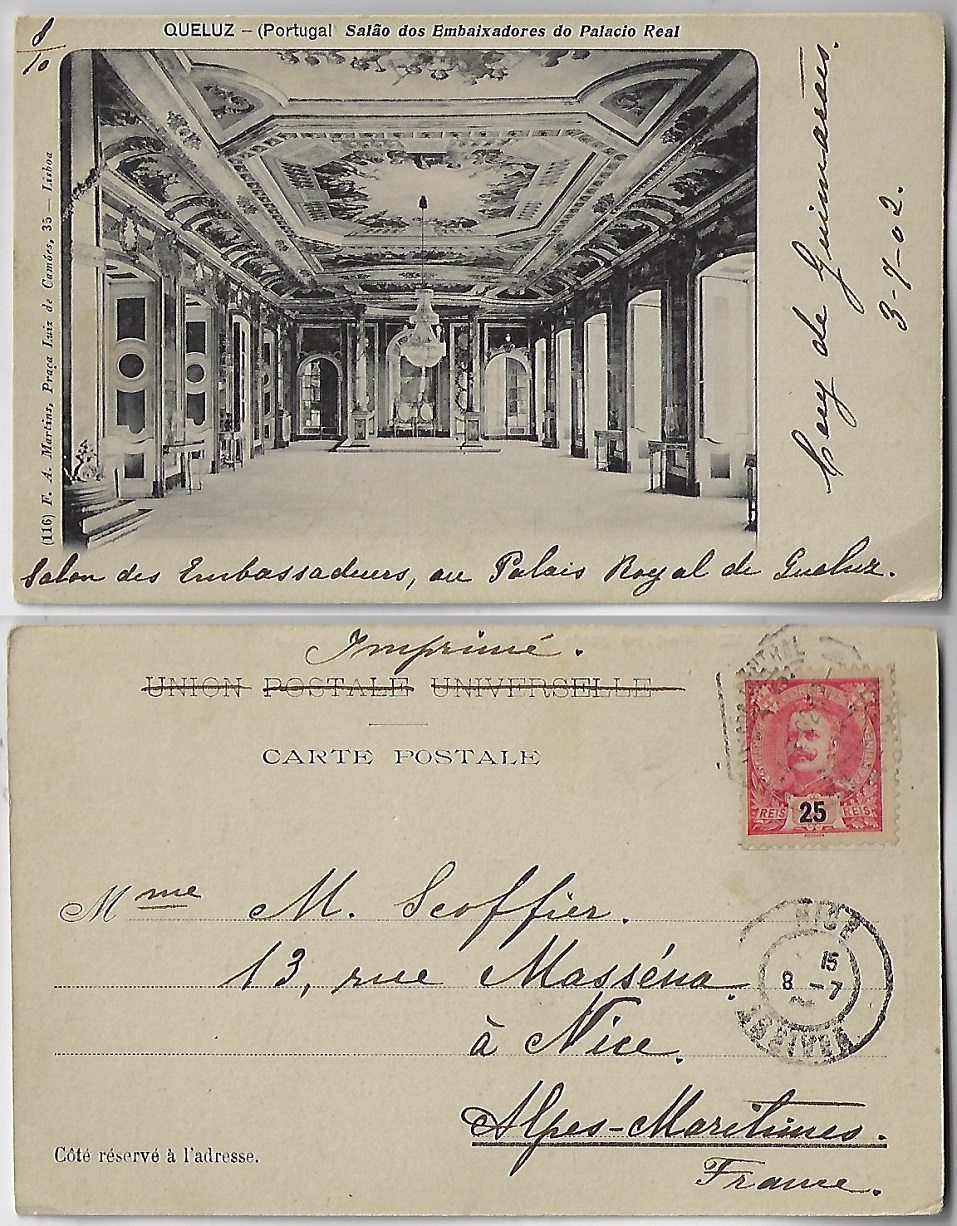 8/10
QUELUZ – (Portugal Salão dos Embaixadores do Palacio Real
(116) F. A. Martins, Praça Luiz de Camões, 35 — Lisboa
de Guimarães.
3-7-02.
Salon des Embassadeurs, au Palais Royal de Queluz.
Imprimé.
UNION POSTALE UNIVERSELLE
CARTE POSTALE
CENTRAL
REIS 25 REIS
Mme M. Scoffier.
13, rue Masséna.
à Nice.
Alpes-Maritimes.
France.
NICE
15
8 -7
Côté réservé à l'adresse.